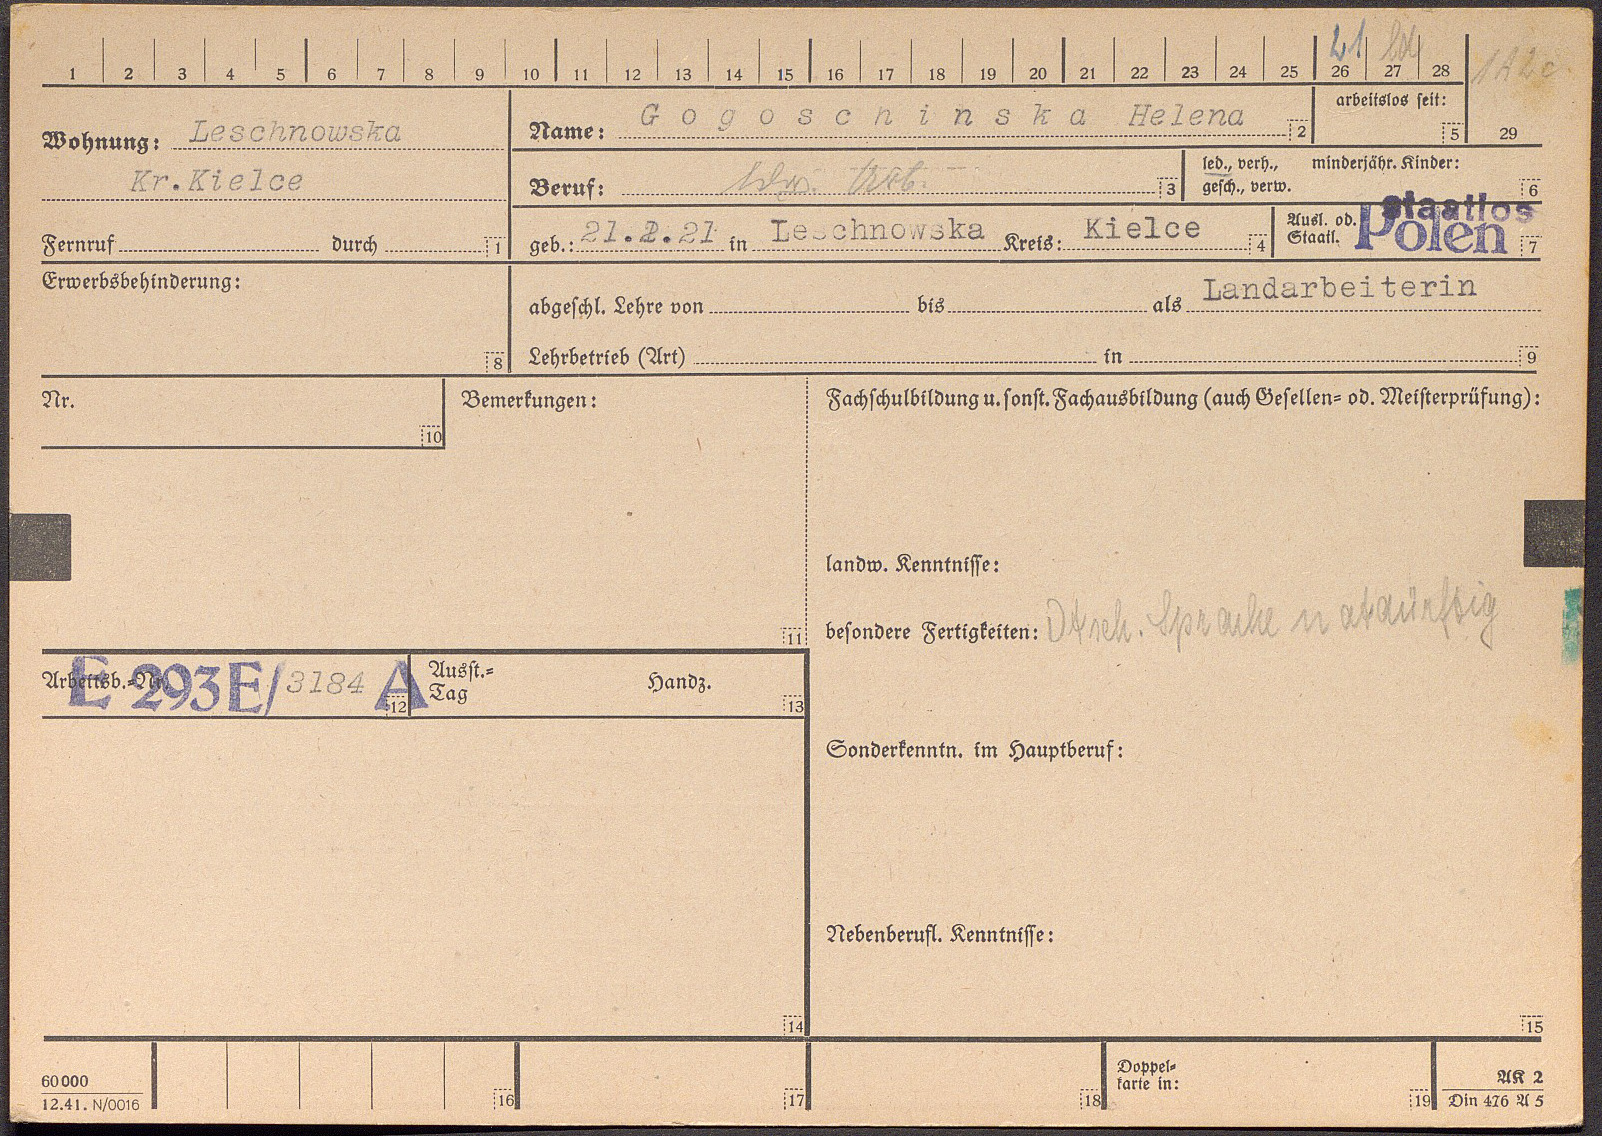 1 2 3 4 5 6 7 8 9 10 11 12 13 14 15 16 17 18 19 20 21 22 23 24 25 26 27 28
21
Wohnung: Leschnowska
Kr.Kielce
Fernruf durch 1
Name: Gogoschinska Helena 2
arbeitslos seit: 5
29
Beruf: 3
led., verh., minderjähr. Kinder:
gesch., verw. 6
geb.: 21.2.21 in Leschnowska Kreis: Kielce 4
Ausl. od. staatlos
Staatl. Polen 7
Erwerbsbehinderung:
8
abgeschl. Lehre von bis als Landarbeiterin
Lehrbetrieb (Art) in 9
Nr.
10
Bemerkungen:
11
Fachschulbildung u. sonst. Fachausbildung (auch Gesellen= od. Meisterprüfung):
landw. Kenntnisse:
besondere Fertigkeiten: Dtsch. Sprache notdürftig
Arbeitsb.=Nr. E 293E/3184 A 12
Ausst.=
Tag
Handz.
13
Sonderkenntn. im Hauptberuf:
Nebenberufl. Kenntnisse:
14
15
60000
12.41. N/0016
16
17
18
Doppel=
karte in:
19
AK 2
Din 476 A 5